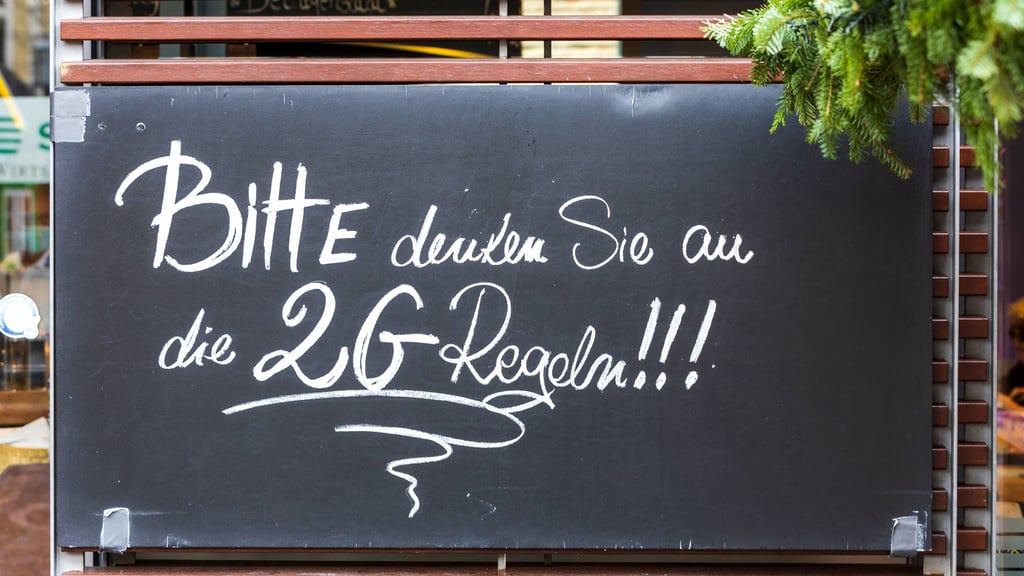 Bitte denken Sie an
die 2G Regeln!!!